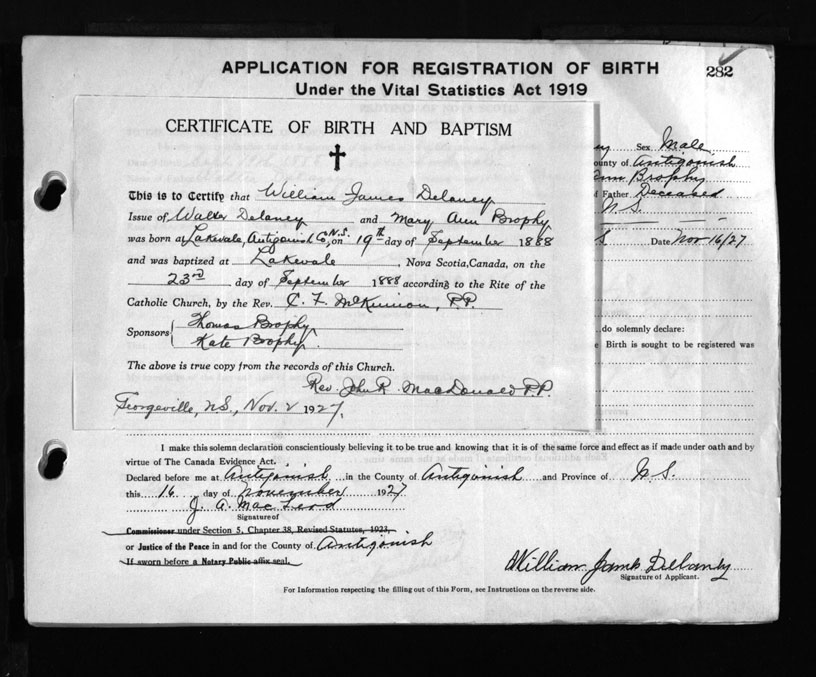 APPLICATION FOR REGISTRATION OF BIRTH
282
Under the Vital Statistics Act 1919
CERTIFICATE OF BIRTH AND BAPTISM
Sex Male
ounty of Antigonish
Ann Brophy
of Father Deceased
N.S.
Date Nov 16/27
This is to Certify that William James Delaney
Issue of Walter Delaney and Mary Ann Brophy
was born at Lakevale, Antigonish Co, N.S. on 19th day of September 1888
and was baptized at Lakevale, Nova Scotia, Canada, on the
23rd day of September 1888 according to the Rite of the
Catholic Church, by the Rev. C. F. McKinnon, P.P.
Sponsors { Thomas Brophy
Kate Brophy.
do solemnly declare:
e Birth is sought to be registered was
The above is true copy from the records of this Church.
Rev. John R. MacDonald P.P.
Georgeville, N.S., Nov. 2 1927.
I make this solemn declaration conscientiously believing it to be true and knowing that it is of the same force and effect as if made under oath and by
virtue of The Canada Evidence Act.
Declared before me at Antigonish in the County of Antigonish and Province of N.S.
this 16 day of November 1927
J. A. MacLeod
Signature of
Commissioner under Section 5, Chapter 38, Revised Statutes, 1923,
or Justice of the Peace in and for the County of Antigonish
If sworn before a Notary Public affix seal.
William James Delaney
Signature of Applicant.
For Information respecting the filling out of this Form, see Instructions on the reverse side.